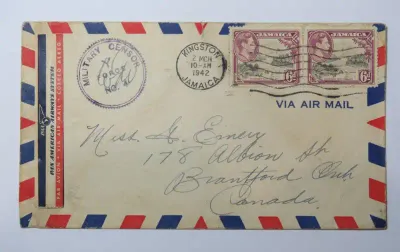 PAN AMERICAN AIRWAYS SYSTEM
PAR AVION · VIA AIR MAIL · CORREO AEREO
MILITARY CENSOR
NO.
KINGSTON
2 MCH
10-AM
1942
JAMAICA
JAMAICA
6D
JAMAICA
6D
VIA AIR MAIL
Miss G. Emery
178 Albion St
Brantford Ont
Canada.